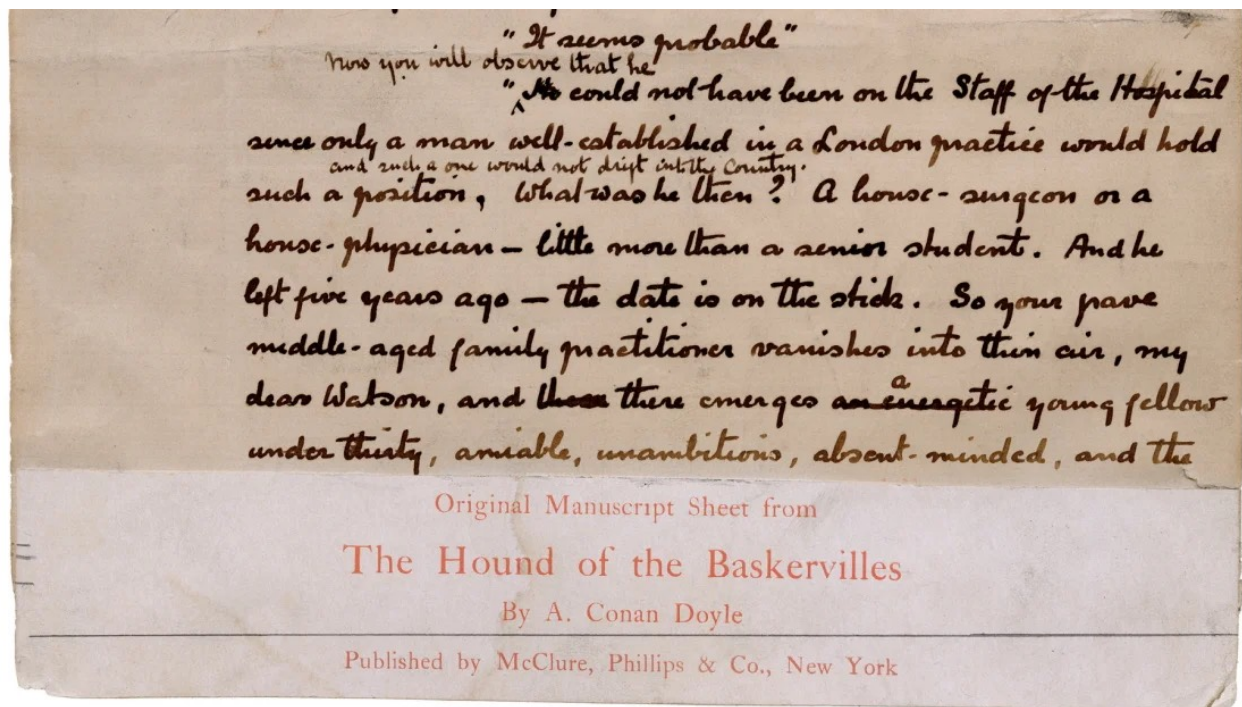 "It seems probable"
Now you will observe that he
"He could not have been on the Staff of the Hospital
since only a man well-established in a London practice would hold
and such a one would not drift into the Country.
such a position, What was he then? A house-surgeon or a
house-physician – little more than a senior student. And he
left five years ago – the date is on the stick. So your grave
middle-aged family practitioner vanishes into thin air, my
dear Watson, and there emerges
a
an energetic young fellow
under thirty, amiable, unambitious, absent-minded, and the
Original Manuscript Sheet from
The Hound of the Baskervilles
By A. Conan Doyle
Published by McClure, Phillips & Co., New York